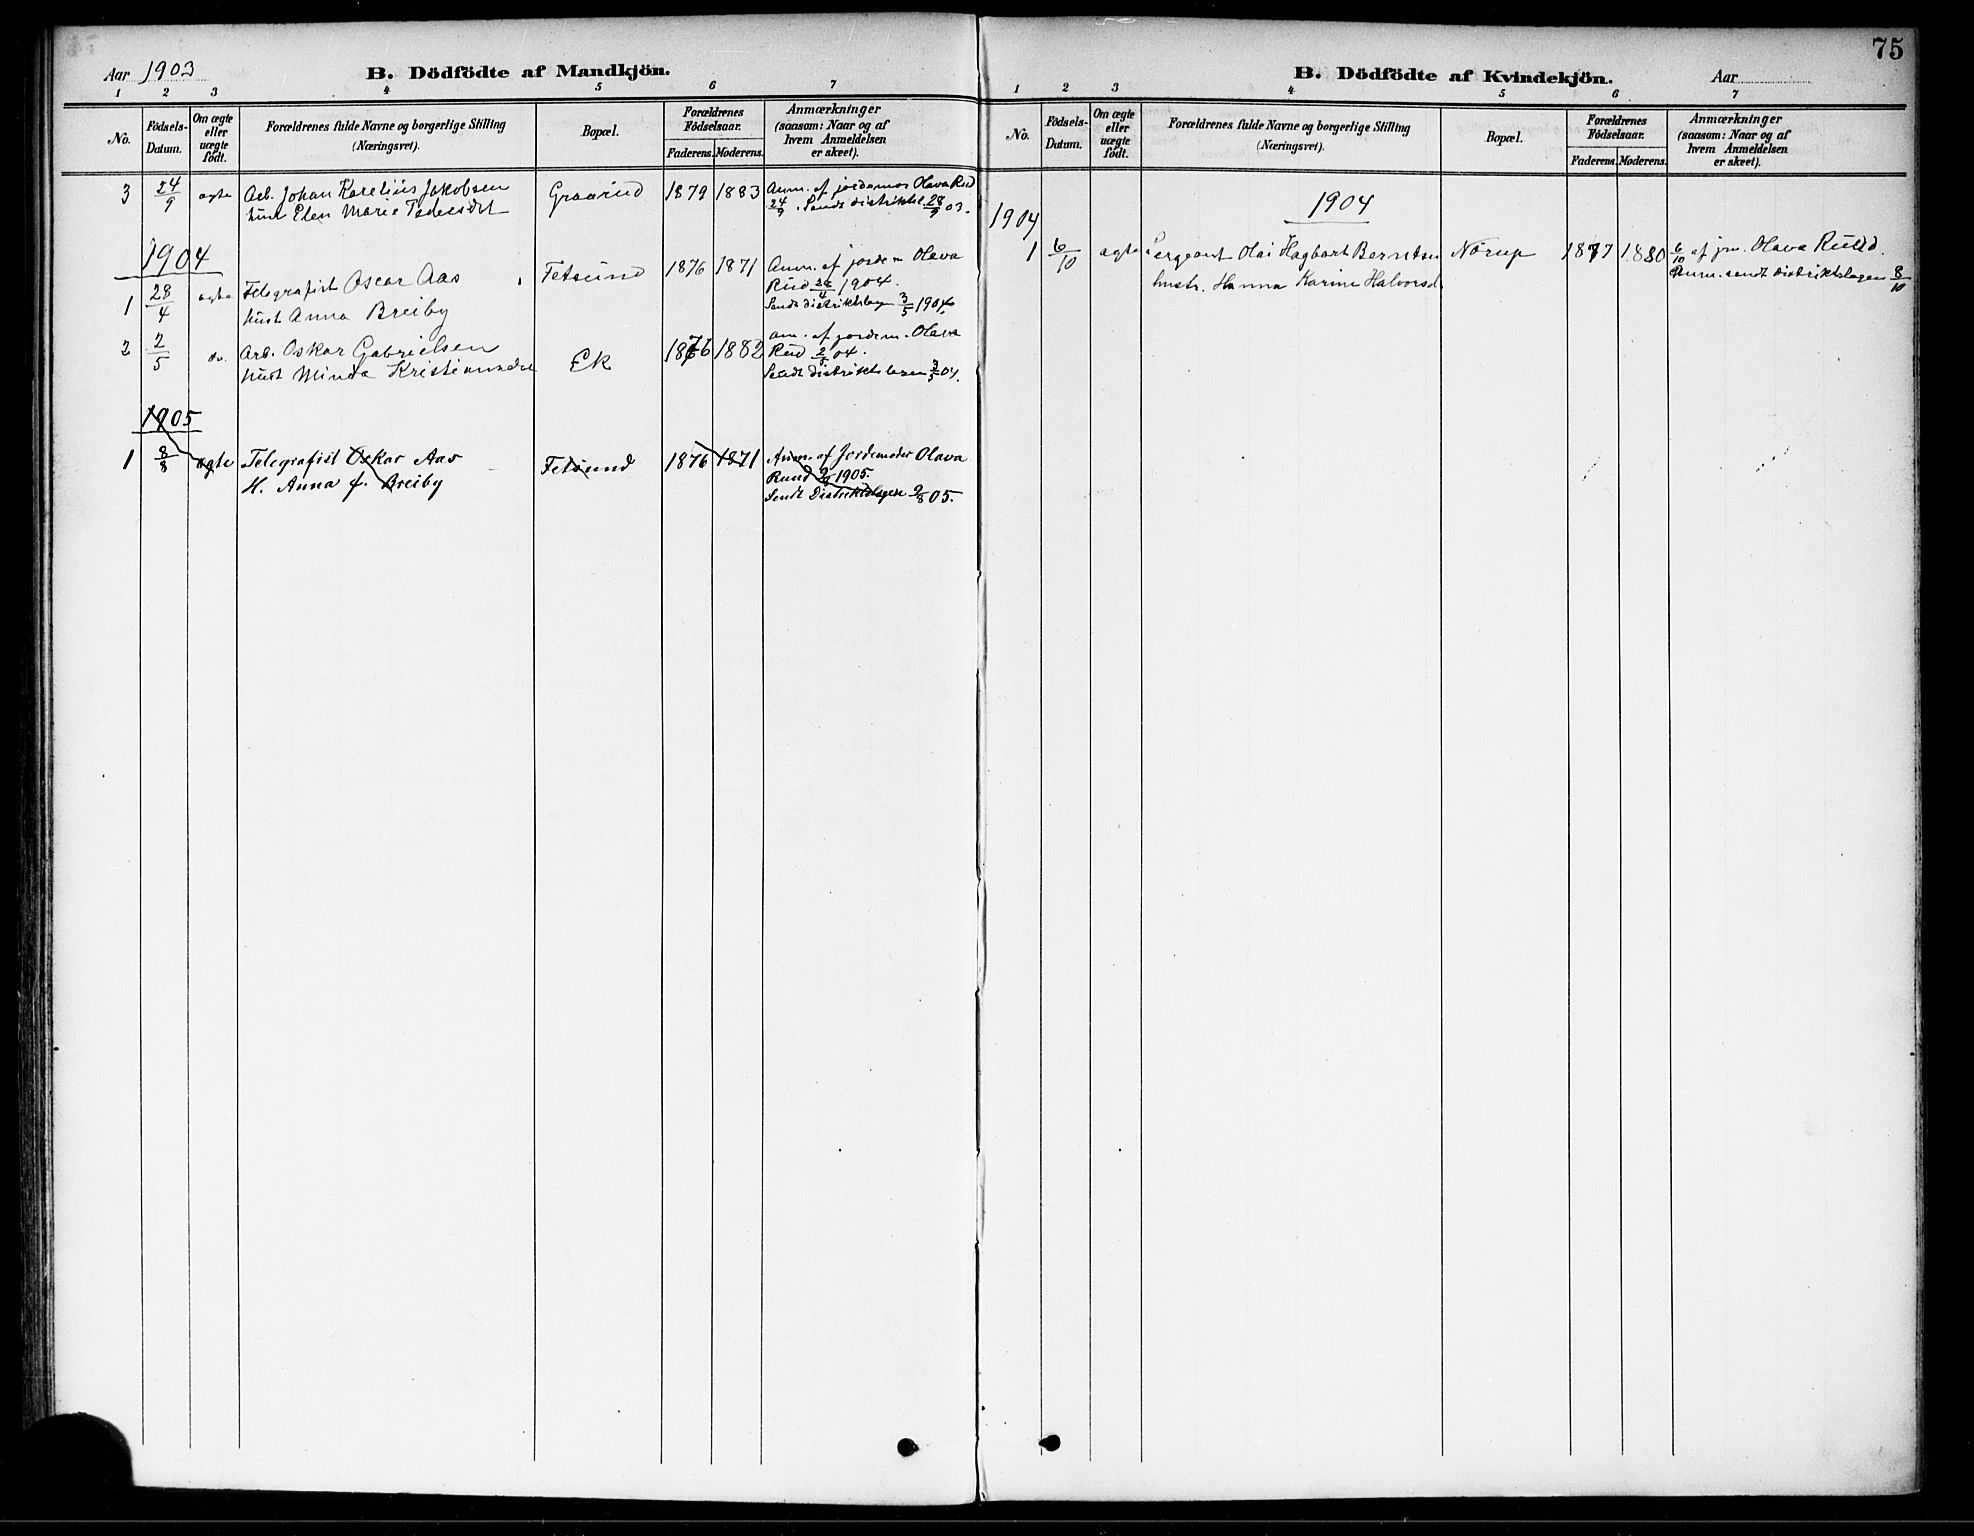 Aar 1903
B. Dödfödte af Mandkjön.
1 2 3 4 5 6 7
No.
Födsels-Datum.
Om ægte eller uægte födt.
Forældrenes fulde Navne og borgerlige Stilling (Næringsvei).
Bopæl.
Forældrenes Födselsaar.
Faderens. Moderens.
Anmærkninger (saasom: Naar og af hvem Anmeldelsen er skeet).
3 24/9 ægte Arb. Johan Karelius Jakobsen Graarud 1879 1883 Anm. af jordemor Olava Rud
hust Elen Marie 24/9. Sendt distriktsl. 28/9 03.
1904
1 28/4 ægte Telegrafist Oscar Aas Fetsund 1876 1871 Anm. af jordem Olava
hust Anna Breiby Rud 28/4 1904.
Sendt distriktslæg 3/5 1904
2 2/5 do. Arb. Oskar Gabrielsen Ek 1876 1882 am. af jordem. Olava
hust Minda Kristiansdr Rud 2/5 04.
Sendt distriktslægen 3/5 04.
1905
1 8/8 ægte Telegrafist Oskar Aas Fetsund 1876 1871 Anm. af Jordemoder Olava
H. Anna f. Breiby Ruud 9/8 1905.
Sendt Distriktslægen 9/8 05.
75
B. Dödfödte af Kvindekjön.
Aar
1 2 3 4 5 6 7
No.
Födsels-Datum.
Om ægte eller uægte födt.
Forældrenes fulde Navne og borgerlige Stilling (Næringsvei).
Bopæl.
Forældrenes Födselsaar.
Faderens. Moderens.
Anmærkninger (saasom: Naar og af hvem Anmeldelsen er skeet).
1904
1904
1 6/10 ægte Sergeant Olai Hagbart Berntsen Nörup 1877 1880 6/10 af jm. Olava Ruud.
hustr. Hanna Karine Halvorsd. Anm. sendt distriktslægen 8/10